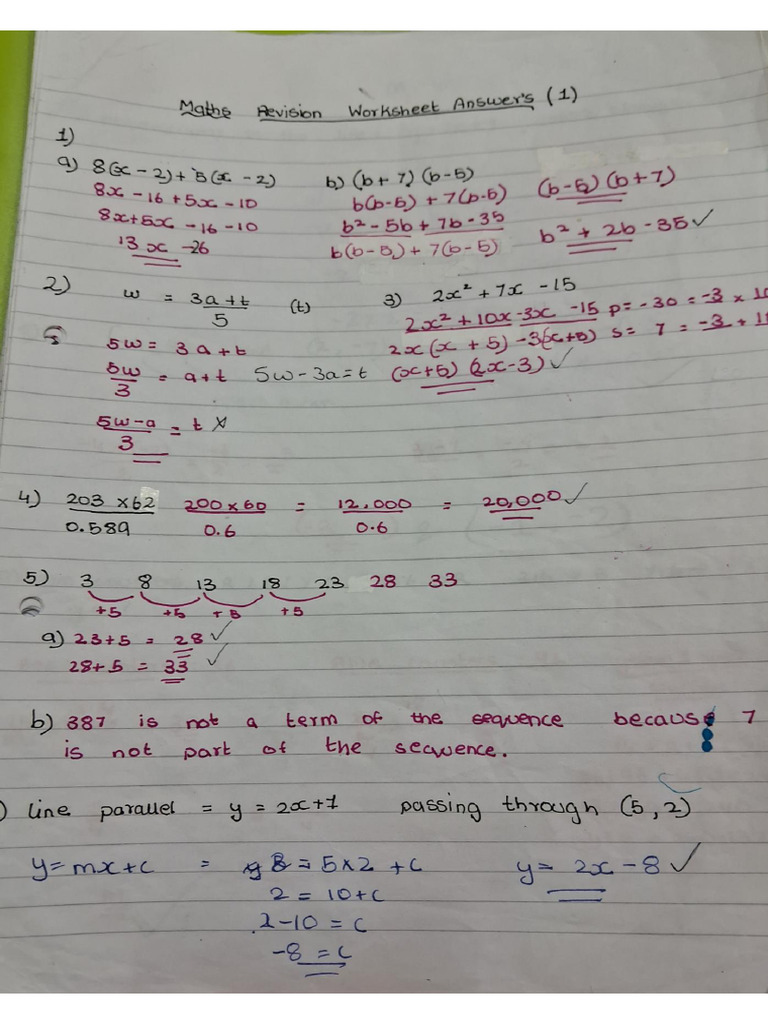 Maths Revision Worksheet Answer's (1)
1)
a) 8(x - 2) + 5(x - 2)
8x - 16 + 5x - 10
8x + 5x - 16 - 10
13x - 26
b) (b + 7) (b - 5)
b(b - 5) + 7(b - 5)
b² - 5b + 7b - 35
b(b - 5) + 7(b - 5)
(b - 5) (b + 7)
b² + 2b - 35 ✓
2) w = 3a + t / 5 (t)
5w = 3a + t
5w / 3 = a + t 5w - 3a = t
5w - a / 3 = t ×
3) 2x² + 7x - 15
2x² + 10x - 3x - 15 p = - 30 = -3 × 10
2x(x + 5) - 3(x + 5) s = 7 = -3 +
(x + 5) (2x - 3) ✓
4) 203 × 62 / 0.589 200 × 60 / 0.6 = 12,000 / 0.6 = 20,000 ✓
5) 3 8 13 18 23 28 33
+5 +5 +5 +5
a) 23 + 5 = 28 ✓
28 + 5 = 33 ✓
b) 387 is not a term of the sequence because 7
is not part of the secwence.
) line parallel = y = 2x + 7 passing through (5, 2)
y = mx + c = 2 = 5 × 2 + c y = 2x - 8 ✓
2 = 10 + c
2 - 10 = c
-8 = c